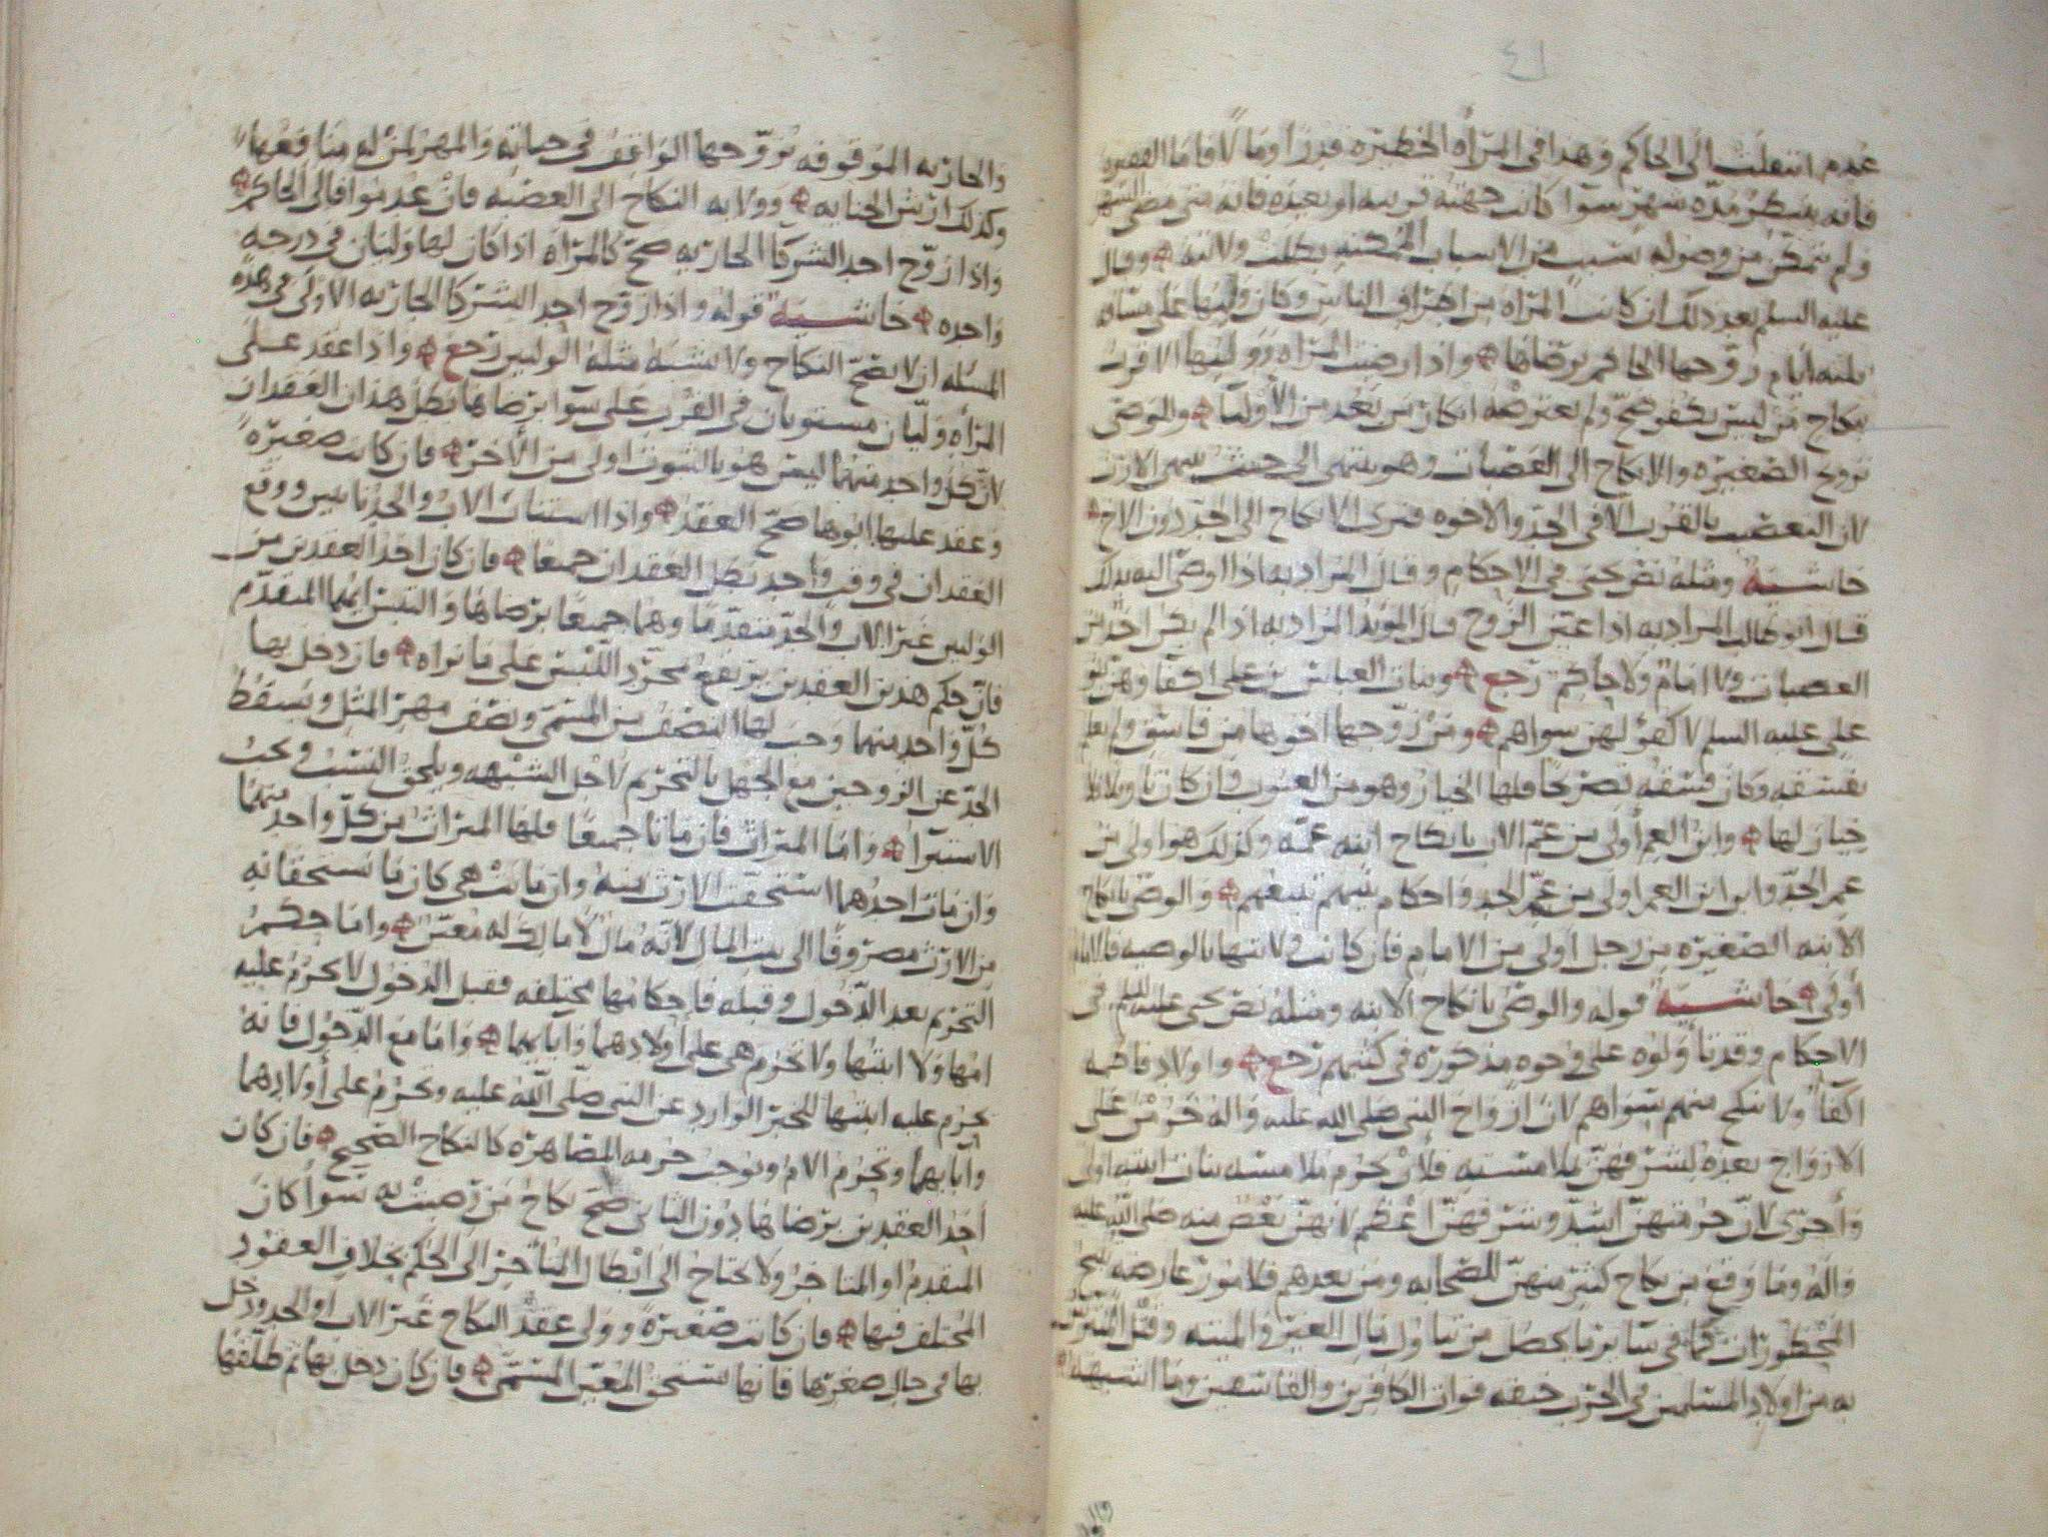 ٤١
عدم انتقلت الى الحاكم وهذا في المرأة الخطيرة قدرا ومالا فاما الفقيرة
فانه ينتظر مدة شهر سوا كانت جهته قريبه او بعيده فانه متى مضى الشهر
ولم يتمكن من وصوله بسبب من الاسباب الممكنه بطلت ولايته وقال
عليه السلم بعد ذلك ان كانت المراه من اطراف الناس وكان وليها على مسافه
ثلثه ايام زوجها الحاكم برضاها واذا رضيت المراه ووليها الاقرب
بنكاح من ليس بكفو صح ولم يعترضه انكار من بعد من الأوليا والموصى
تزويج الصغيره والانكاح الى العصبات وهو ينتهى الى حيث ينتهى الارث
لان التعصيب بالقرب الا في الجد والاخوه فنرى الانكاح الى الجد دون الاخ
حاشيه ومثله نص يحيى في الاحكام وقال المراد به اذا اوصى اليه بذلك
قال ابو طالب المراد به اذا عين الزوج قال المؤيد المراد به اذا لم يكن احد من
العصبات ولا امام ولا حاكم رجع وبنات العباس بن علي اكفاوهن بنو
علي عليه السلم لا كفو لهن سواهم ومن زوجها اخوها من فاسق ولم يعلم
بفسقه وكان فسقه تصريحا فلها الخيار وهو من العيوب وان كان تاويلا فلا
خيار لها وابن العم أولى من عم الاب بانكاح ابنه عمه وكذلك هو اولى من
عم الجد وابو ابن العم اولى من عم الجد واحكام بينهم تتبعهم والوصى بانكاح
الابنه الصغيره من رجل أولى من الامام فان كانت ولايتها بالوصيه فالامام
أولى حاشيه قوله والوصى بانكاح الابنه ومثله نص يحيى عليه السلم في
الاحكام وقد تأولوه على وجوه مذكورة في كتبهم رجع واولاد فاطمه
اكفا ولا ينكح منهم سواهم لان ازواج النبي صلى الله عليه واله حرمن على
الازواج بعده لشرفهن بملامسته فلأن يحرم ملامسه بنات ابنته اولى
وأحرى لان حرمتهن اشد وشرفهن اعظم لانهن بعض منه صلى الله عليه
واله وما وقع من نكاح كثير منهن للصحابه ومن بعدهم فلامور عارضه تبيح
المحظورات كما في سائر ما يحصل من تناول مال الغير والميته وقتل المتترس
به من اولاد المسلمين في الحرب خيفه فوات الكافرين والفاسقين وما اشبهه
والجاريه الموقوفه يزوجها الواقف في حياته والمهر لمن له منافعها
وكذلك ارش الجنايه وولايه النكاح الى العصبه فان عدموا فالى الحاكم
واذا زوج احد الشركا الجاريه صح كالمراه اذا كان لها وليان في درجه
واحده حاشيه قوله واذا زوج احد الشركا الجاريه الاولى في هذه
المسئله ان لا يصح النكاح ولا يشبه مثله الوليين رجع واذا عقد على
المرأه وليان مستويان في القرب على سوا برضاها بطل هذان العقدان
لان كل واحد منهما ليس هو بالثبوت اولى من الأخر فان كانت صغيرة
وعقد عليها ابوها صح العقد واذا استناب الاب والجد نائبين ووقع
العقدان في وقت واحد بطل العقدان جميعا فان كان احد العقدين من
الوليين غير الاب والجد متقدما وهما جميعا برضاها والتبس ايهما المتقدم
فان حكم هذين العقدين يرتفع بمجرد اللبس على ما نراه فان دخل بها
كل واحد منهما وجب لها النصف من المسمى ونصف مهر المثل ويسقط
الحد عن الزوجين مع الجهل بالتحريم لاجل الشبهه ويلحق النسب ويجب
الاستبرا واما الميراث فان ماتا جميعا فلها الميراث من كل واحد منهما
وان مات احدهما استحقت الارث منه وان ماتت هي كان ما يستحقانه
من الارث مصروفا الى بيت المال لانه مال لا مالك له معين واما حكم
التحريم بعد الدخول وقبله فاحكامها مختلفه فقبل الدخول لا يحرم عليه
امها ولا ابنتها ولا تحرم هي على أولادهما وابايهما واما مع الدخول فانه
يحرم عليه ابنتها للخبر الوارد عن النبي صلى الله عليه وتحرم على أولادهما
وآبايهما وتحرم الام ويوجب حرمه المصاهره كالنكاح الصحيح فان كان
احد العقدين برضاها دون الثاني صح نكاح من رضيت به سوأ كان
المتقدم او المتاخر ولا يحتاج الى ابطال المتاخر الى الحكم بخلاف العقود
المختلف فيها فان كانت صغيرة وولي عقد النكاح غير الاب او الجد ودخل
بها في حال صغرها فانها تستحق المعين المسمى فان كان دخل بها ثم طلقها